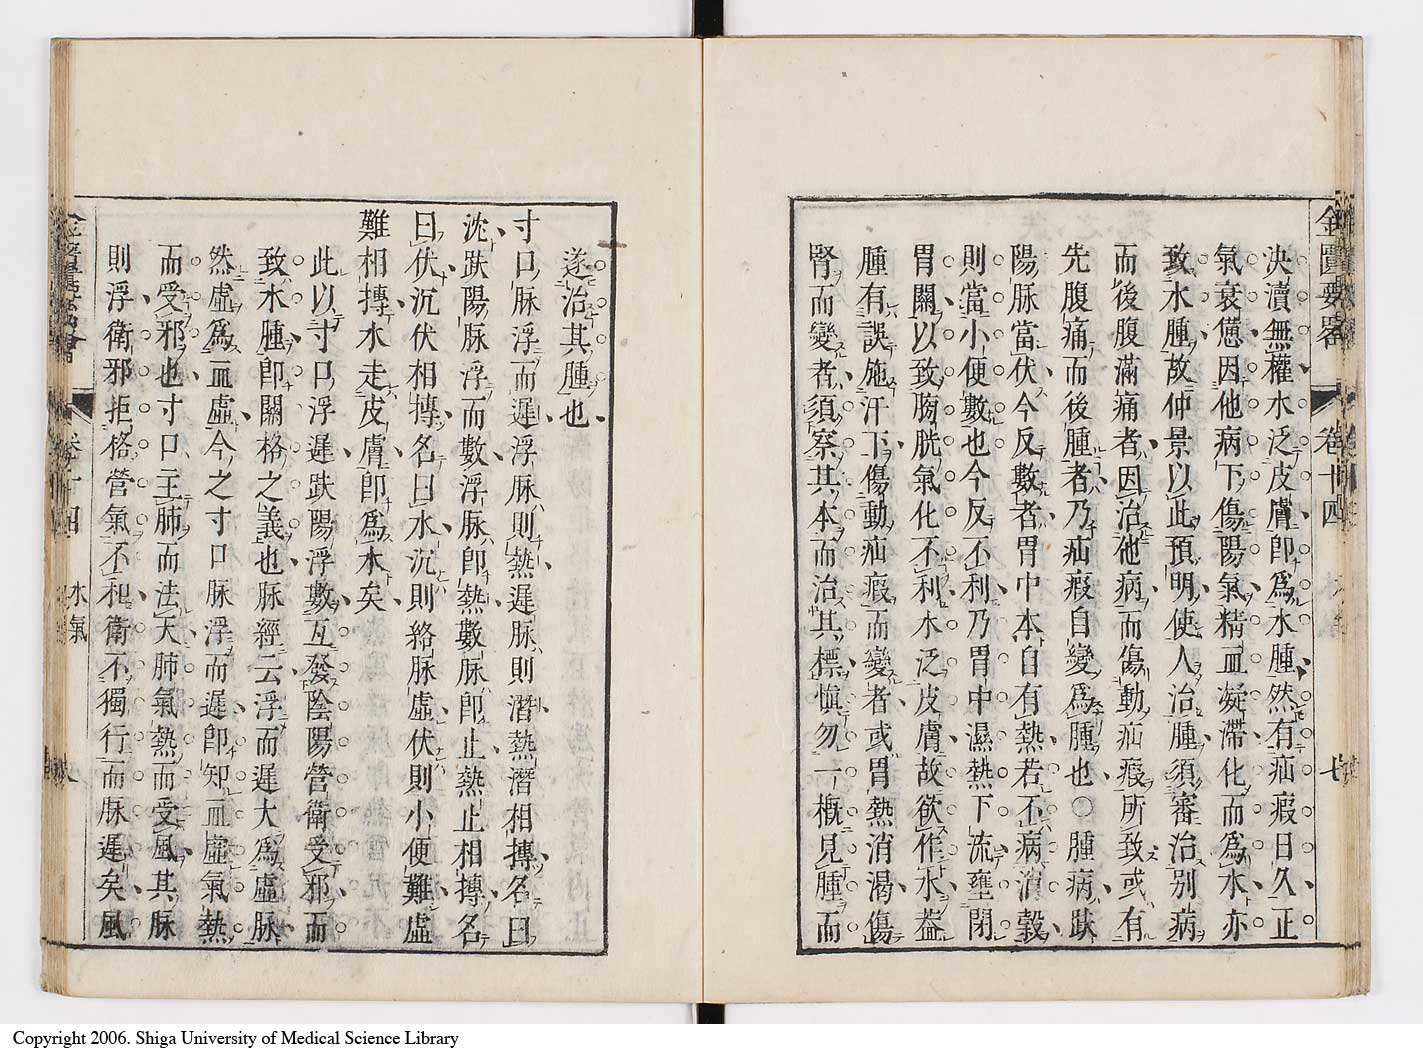 金匱要畧 卷十四 七
决瀆無權水泛皮膚卽爲水腫然有疝瘕日久正
氣衰憊因他病下傷陽氣精血凝滯化而爲水亦
致水腫故仲景以此預明使人治腫須審治别病
而後腹滿痛者因治他病而傷動疝瘕所致或有
先腹痛而後腫者乃疝瘕自變爲腫也〇腫病趺
陽脉當伏今反數者胃中本自有熱若不病消穀
則當小便數也今反不利乃胃中濕熱下流壅閉
胃關以致膀胱氣化不利水泛皮膚故欲作水葢
腫有誤施汗下傷動疝瘕而變者或胃熱消渴傷
腎而變者須察其本而治其標愼勿一槪見腫而
遂治其腫也
寸口脉浮而遲浮脉則熱遲脉則潛熱潛相摶名曰
沈趺陽脉浮而數浮脉卽熱數脉卽止熱止相摶名
曰伏沉伏相摶名曰水沉則絡脉虛伏則小便難虛
難相摶水走皮膚卽爲水矣
此以寸口浮遲趺陽浮數互發陰陽營衛受邪而
致水腫卽關格之義也脉經云浮而遲大爲虛脉
然虛爲血虛今之寸口脉浮而遲卽知血虛氣熱
而受邪也寸口主肺而法天肺氣熱而受風其脉
則浮衛邪拒格營氣不和衛不獨行而脉遲矣風
卷十四 水氣
Copyright 2006. Shiga University of Medical Science Library